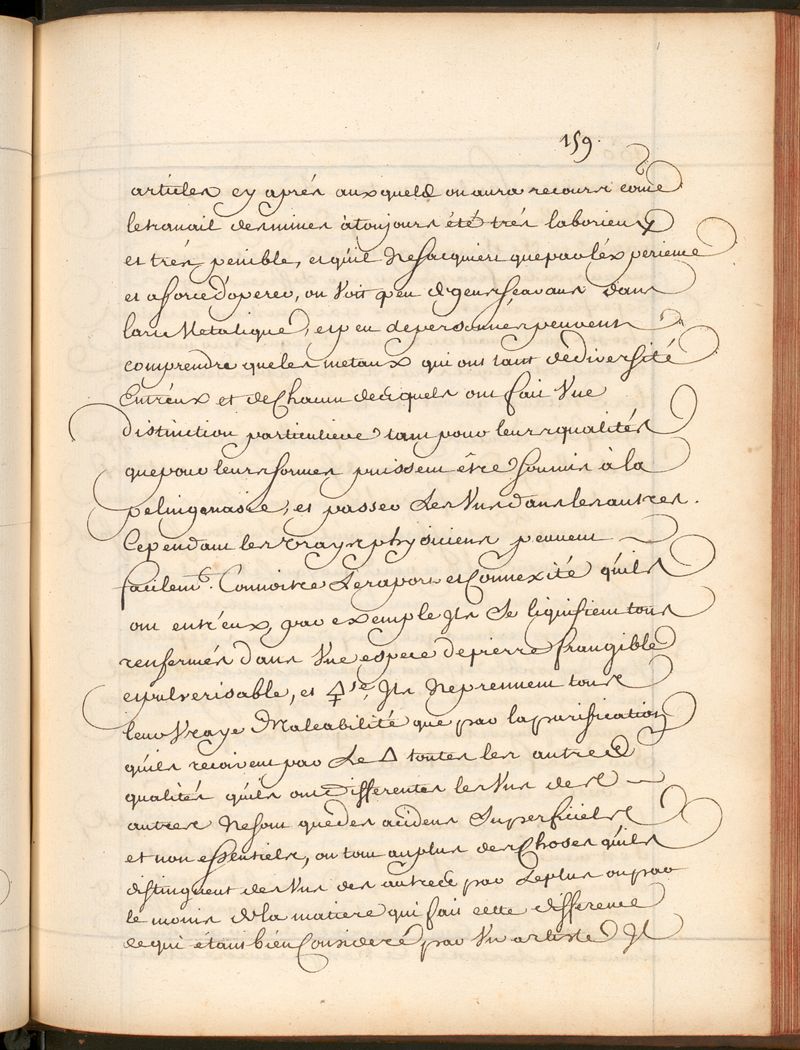 159.
articles cy aprés auxquels on aura recours come
le travail des mines à toujours été trés laborieux
et trés penible, et qu'il ne s'acquiert que par l'éxperience
et a force d'operer, on voit peu de gens sçavans dans
l'art Metalique, et peu de personnes peuvent
comprendre que les metaux qui ont tant de diversité
Entr'eux et de Chacun desquels on fait Vne
distinction particuliere tant pour leurs qualités
que pour leurs formes puissent être soumis à la
et passer Les Vns dans les autres.
Cependant les vrays physiciens peuvent
facilemt. Connoitre Le raport et Connexité qu'ils
ont entr'eux, par exemple Ils Se liquifient tous
renfermés dans Vne espece de pierre frangible
et pulverisable, et 🜍se, Ils Ne prennent tous
leur Vraye Maleabilité que par la purification
qu'ils reçoivent par Le △ toutes les autres
qualités qu'ils ont differentes les Vns des
autres Ne sont que des accidens Superficiels
et non essentiels, ou tout au plus des Choses qu'ils
distinguent des Vns des autres par Le plus ou par
le moins de la matiere qui fait cette difference
ce qui étant bien Consideré par Vn artiste Il